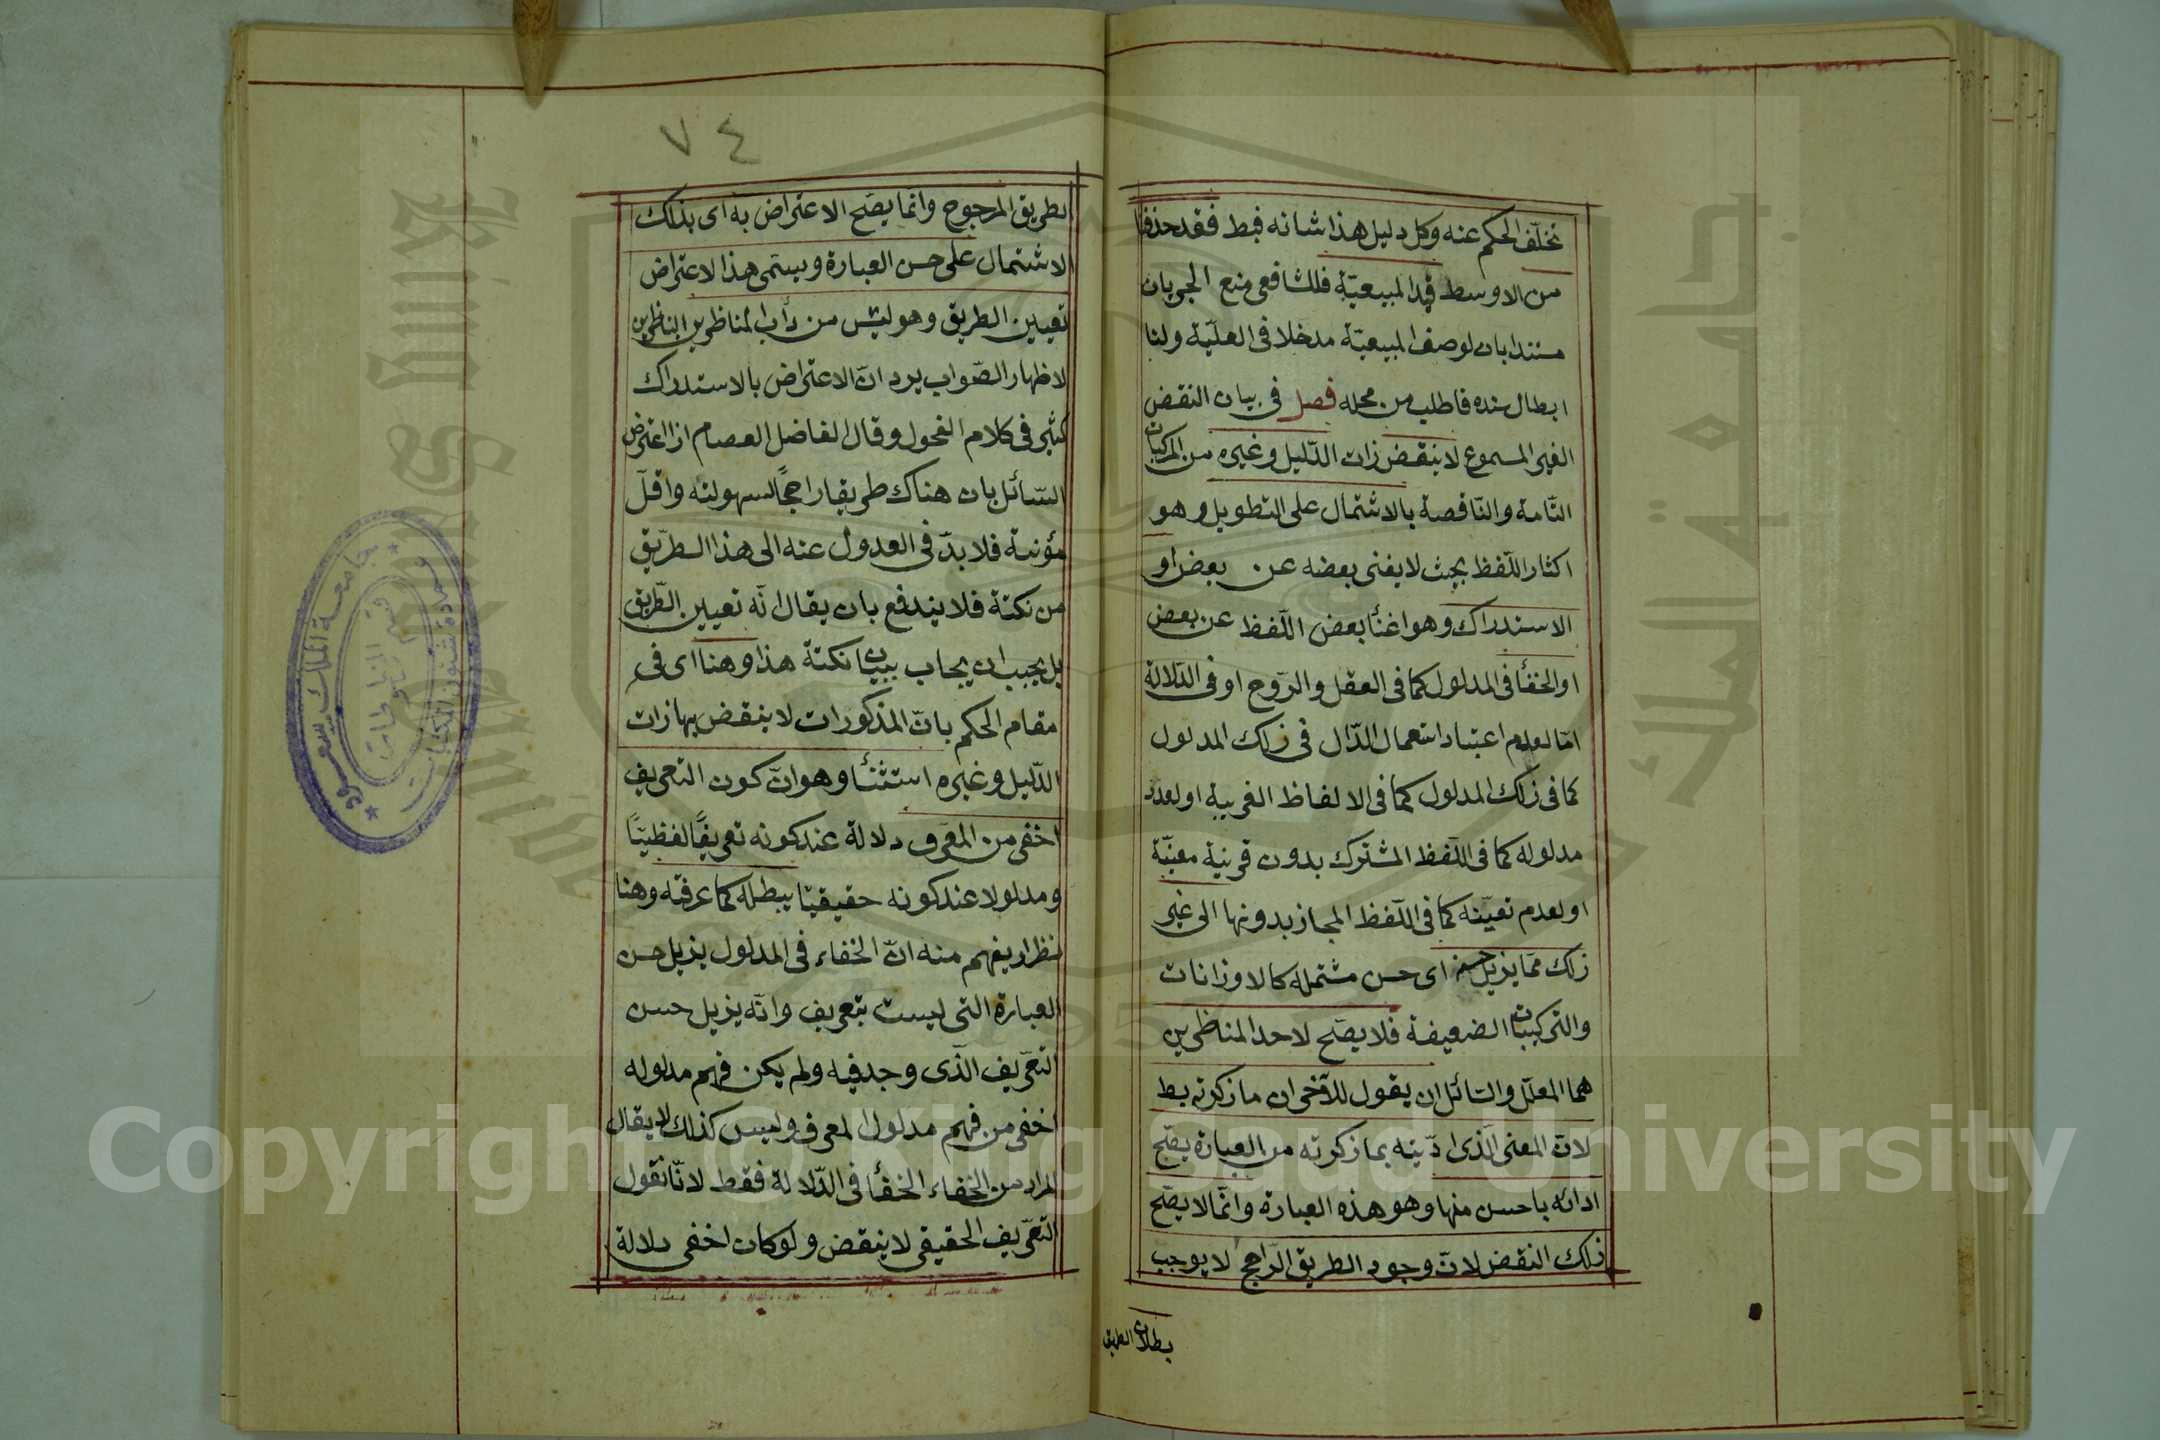 تخلّف الحكم عنه وكل دليل هذا شانه فبط فقد حذفنا
من الاوسط قيد المبيعيّة فللشافعى منع الجريان
مستندا بان لوصف المبيعيّة مدخلا فى العلّية ولنا
ابطال سنده فاطلب من محله فصل فى بيان النقض
الغير المسموع لا ينقض ذات الدّليل وغيره من المركبات
التّامة والنّاقصة بالاشتمال على التطويل وهو
اكثار اللّفظ بحيث لا يغنى بعضه عن بعض او
الاستدراك وهو اغنأ بعض اللّفظ عن بعض
او الخفأ فى المدلول كما فى العقل والرّوح او فى الدّلالة
امّا لعدم اعتياد استعمال الدّال فى ذلك المدلول
كما فى ذلك المدلول كما فى الالفاظ الغريبة او لعدد
مدلوله كما فى اللّفظ المشترك بدون قرينة معيّنة
او لعدم تعيّنه كما فى اللّفظ المجاز بدونها الى غير
ذلك ممّا يزيل حسنه اى حسن مشتمله كالاوزانات
والتركيبات الضعيفة فلا يصّح لاحد المناظرين
هما المعلّل والسّائل ان يقول للآخر ان ما ذكرته بط
لانّ المعنى الّذى ادّيته بما ذكرته من العبارة يصّح
ادائه باحسن منها وهو هذه العبارة وانّما لا يصّح
ذلك النقض لانّ وجود الطريق الرّاجح لا يوجب
بطلان الطريق
٧٤
بطريق المرجوح وانّما يصّح الاعتراض به اى بذلك
الاشتمال على حسن العبارة ويسمّى هذا الاعتراض
تعيين الطريق وهو ليس من دأب المناظرين الناظرين
لاظهار الصّواب يرد انّ الاعتراض بالاستدراك
كثير فى كلام الفحول وقال الفاضل العصام اذا اعترض
السّائل بان هناك طريقا راجحًا لسهولته واقلّ
مؤنة فلا بدّ فى العدول عنه الى هذا الطّريق
من نكتة فلا يندفع بان يقال انّه تعيين الطّريق
بل يجب ان يجاب ببيان نكتة هذا وهنا اى فى
مقام الحكم بانّ المذكورات لا ينقض بها ذات
الدّليل وغيره استثنأ وهو انّ كون التعريف
اخفى من المعّرف دلالة عند كونه تعريفًا لفظيّا
ومدلولا عند كونه حقيقيّا يبطله كما عرفته وهنا
نظر اذ يفهم منه انّ الخفاء فى المدلول يزيل حسن
العبارة التى ليست بتعريف وانّه يزيل حسن
التعّريف الذّى وجد فيه ولم يكن فهم مدلوله
اخفى من فهم مدلول المعرف وليس كذلك لا يقال
المراد من الخفاء الخفأ فى الدّلالة فقط لانّا نقول
التعّريف الحقيقى لا ينقض ولو كان اخفى دلالة
جامعة الملك سعود
عمادة شئون المكتبات
قسم المخطوطات
جامعة الملك سعود
King Saud University
Copyright © King Saud University